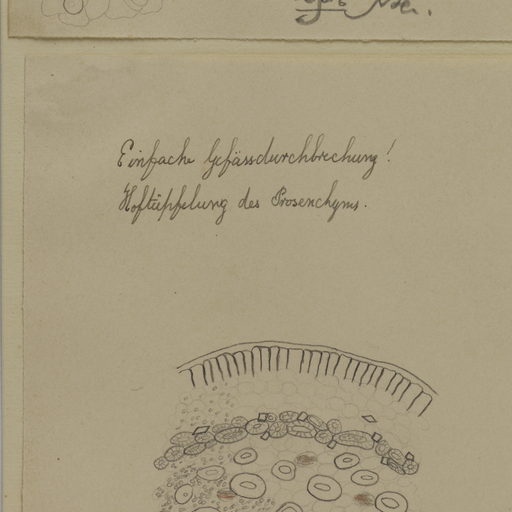 Einfache Gefässdurchbrechung!
Hoftüpfelung des Prosenchyms.